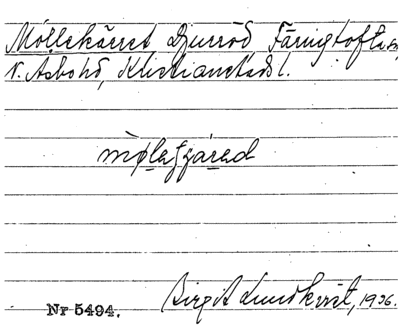 Möllekärret Djurröd Färingtofta sn,
N. Åsbo hd, Kristianstads l.
Nr 5494. Birgit Lundkvist, 1936.